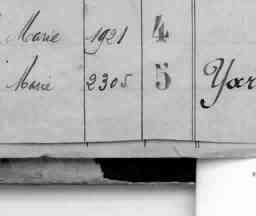 Marie 1921 4
Marie 2305 5